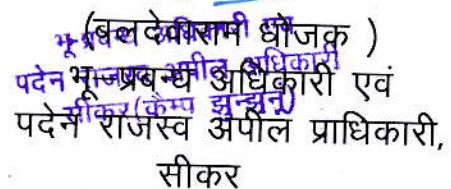 (बलदेवाराम धोजक )
भू-प्रबन्ध अधिकारी एवं
पदेन राजस्व अपील प्राधिकारी,
सीकर
भू-प्रबन्ध अधिकारी एवं
पदेन राजस्व अपील अधिकारी
सीकर (कैम्प झुन्झुनू)